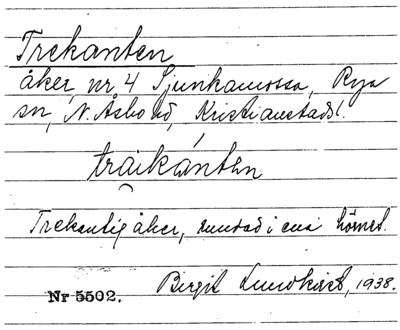 Trekanten
åker nr 4 Sjunkamossa, Rya
sn, N. Åsbo hd, Kristianstads l.
traikánten
Trekantig åker, rundad i ena hörnet.
Nr 5502. Birgit Lundkvist, 1938.